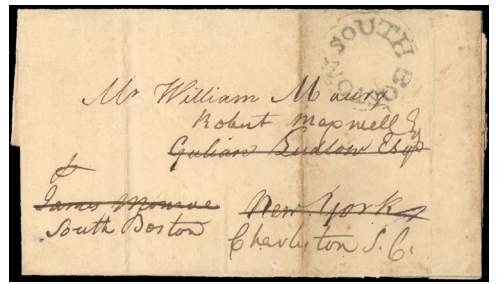 SOUTH BOSTON
Mr William Maury
Robert Maxwell Esq
Gulian Ludlow Esqr
James Monroe
South Boston
New York
Charleston S. C.